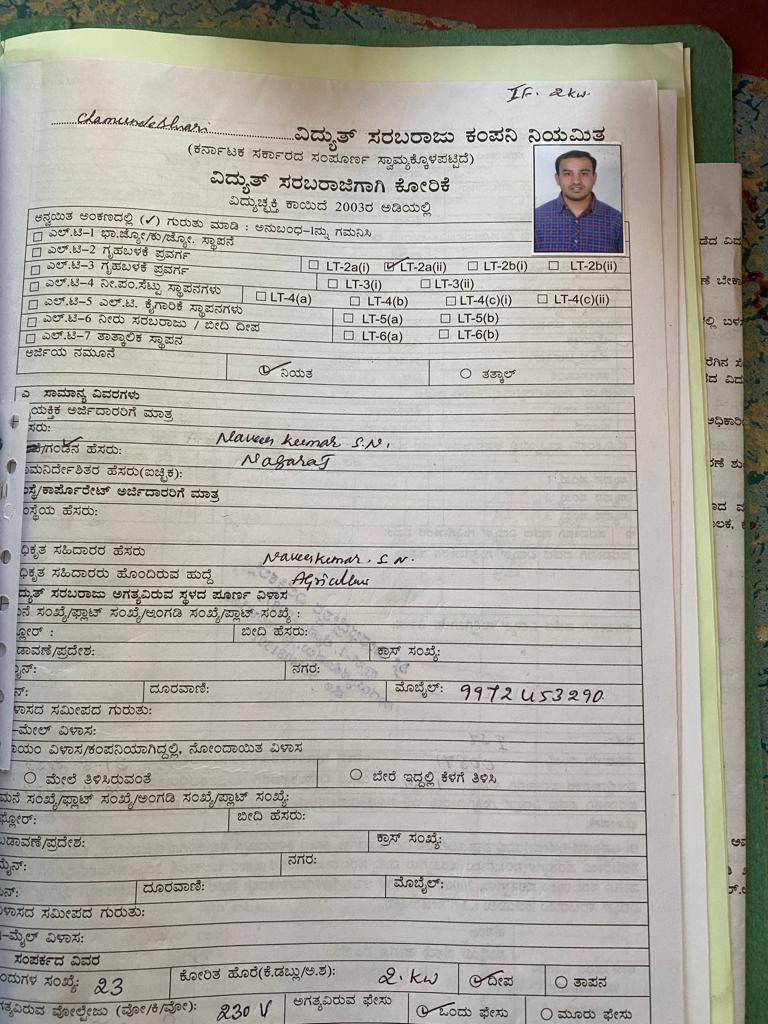 IF. 2 kw.
Chamundeshwari ವಿದ್ಯುತ್ ಸರಬರಾಜು ಕಂಪನಿ ನಿಯಮಿತ
(ಕರ್ನಾಟಕ ಸರ್ಕಾರದ ಸಂಪೂರ್ಣ ಸ್ವಾಮ್ಯಕ್ಕೊಳಪಟ್ಟಿದೆ)
ವಿದ್ಯುತ್ ಸರಬರಾಜಿಗಾಗಿ ಕೋರಿಕೆ
ವಿದ್ಯುಚ್ಛಕ್ತಿ ಕಾಯಿದೆ 2003ರ ಅಡಿಯಲ್ಲಿ
ಅನ್ವಯಿತ ಅಂಕಣದಲ್ಲಿ (✓) ಗುರುತು ಮಾಡಿ : ಅನುಬಂಧ-1ನ್ನು ಗಮನಿಸಿ
ಎಲ್.ಟಿ-1 ಭಾ.ಜ್ಯೋ/ಕು/ಜ್ಯೋ. ಸ್ಥಾಪನೆ
ಎಲ್.ಟಿ-2 ಗೃಹಬಳಕೆ ಪ್ರವರ್ಗ LT-2a(i) LT-2a(ii) LT-2b(i) LT-2b(ii)
ಎಲ್.ಟಿ-3 ಗೃಹಬಳಕೆ ಪ್ರವರ್ಗ LT-3(i) LT-3(ii)
ಎಲ್.ಟಿ-4 ನೀ.ಪಂ.ಸೆಟ್ಟು ಸ್ಥಾಪನಗಳು LT-4(a) LT-4(b) LT-4(c)(i) LT-4(c)(ii)
ಎಲ್.ಟಿ-5 ಎಲ್.ಟಿ. ಕೈಗಾರಿಕೆ ಸ್ಥಾಪನಗಳು LT-5(a) LT-5(b)
ಎಲ್.ಟಿ-6 ನೀರು ಸರಬರಾಜು / ಬೀದಿ ದೀಪ LT-6(a) LT-6(b)
ಎಲ್.ಟಿ-7 ತಾತ್ಕಾಲಿಕ ಸ್ಥಾಪನ
ಅರ್ಜಿಯ ನಮೂನೆ
ನಿಯತ ತತ್ಕಾಲ್
ಎ ಸಾಮಾನ್ಯ ವಿವರಗಳು
ಯಕ್ತಿಕ ಅರ್ಜಿದಾರರಿಗೆ ಮಾತ್ರ
ಸರು: Naveen kumar S.N.
/ಗಂಡನ ಹೆಸರು: Nagaraj
ಮನಿರ್ದೇಶಿತರ ಹೆಸರು(ಐಚ್ಛಿಕ):
ಸ್ಥೆ/ಕಾರ್ಪೊರೇಟ್ ಅರ್ಜಿದಾರರಿಗೆ ಮಾತ್ರ
ಸ್ಥೆಯ ಹೆಸರು:
ಧಿಕೃತ ಸಹಿದಾರರ ಹೆಸರು Naveenkumar. S.N.
ಧಿಕೃತ ಸಹಿದಾರರು ಹೊಂದಿರುವ ಹುದ್ದೆ
ದ್ಯುತ್ ಸರಬರಾಜು ಅಗತ್ಯವಿರುವ ಸ್ಥಳದ ಪೂರ್ಣ ವಿಳಾಸ
ನೆ ಸಂಖ್ಯೆ/ಫ್ಲಾಟ್ ಸಂಖ್ಯೆ/ಅಂಗಡಿ ಸಂಖ್ಯೆ/ಪ್ಲಾಟ್ ಸಂಖ್ಯೆ :
ಲೋರ್ : ಬೀದಿ ಹೆಸರು:
ಡಾವಣೆ/ಪ್ರದೇಶ: ಕ್ರಾಸ್ ಸಂಖ್ಯೆ:
ನ್: ನಗರ:
ನ್: ದೂರವಾಣಿ: ಮೊಬೈಲ್: 9972453290
ಳಾಸದ ಸಮೀಪದ ಗುರುತು:
-ಮೇಲ್ ವಿಳಾಸ:
ಾಯಂ ವಿಳಾಸ/ಕಂಪನಿಯಾಗಿದ್ದಲ್ಲಿ, ನೋಂದಾಯಿತ ವಿಳಾಸ
ಮೇಲೆ ತಿಳಿಸಿರುವಂತೆ ಬೇರೆ ಇದ್ದಲ್ಲಿ ಕೆಳಗೆ ತಿಳಿಸಿ
ಮನೆ ಸಂಖ್ಯೆ/ಫ್ಲಾಟ್ ಸಂಖ್ಯೆ/ಅಂಗಡಿ ಸಂಖ್ಯೆ/ಪ್ಲಾಟ್ ಸಂಖ್ಯೆ:
ಫ್ಲೋರ್: ಬೀದಿ ಹೆಸರು:
ಬಡಾವಣೆ/ಪ್ರದೇಶ: ಕ್ರಾಸ್ ಸಂಖ್ಯೆ:
ಮೈನ್: ನಗರ:
ನ್: ದೂರವಾಣಿ: ಮೊಬೈಲ್:
ಳಾಸದ ಸಮೀಪದ ಗುರುತು:
-ಮೈಲ್ ವಿಳಾಸ:
ಸಂಪರ್ಕದ ವಿವರ
ಂದುಗಳ ಸಂಖ್ಯೆ: 23 ಕೋರಿತ ಹೊರೆ(ಕೆ.ಡಬ್ಲು/ಅ.ಶ): 2. kw ದೀಪ ತಾಪನ
ಗತ್ಯವಿರುವ ವೋಲ್ಟೇಜು (ವೋ/ಕಿ/ವೋ): 230 V ಅಗತ್ಯವಿರುವ ಫೇಸು ಒಂದು ಫೇಸು ಮೂರು ಫೇಸು